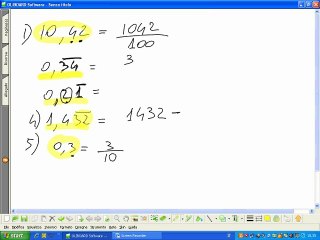 OLIBOARD Software - Senza titolo
1) 10,42 = 1042/100
0,3̅4̅ = 3
0,01̅ =
4) 1,43̅2̅ = 1432 −
5) 0,3 = 3/10
start